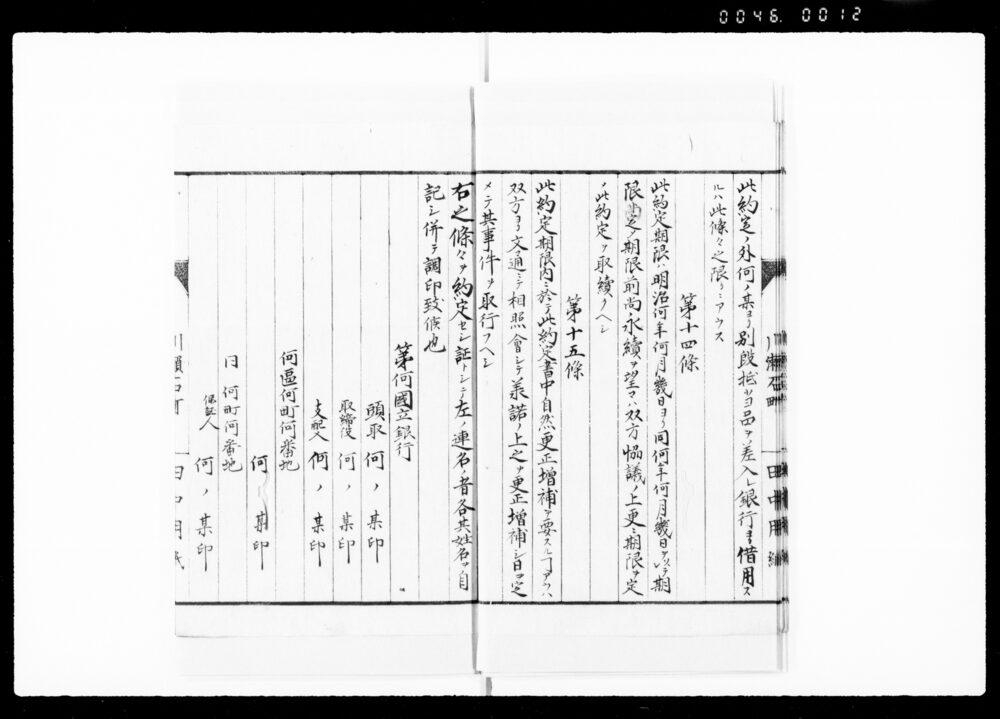 0046. 0012
此約定ノ外何ノ某ヨリ別段抵当品ヲ差入レ銀行ヨリ借用ス
ルハ此條々之限リニアラス
第十四條
此約定期限ハ明治何年何月幾日ヨリ同何年何月幾日ヲ以テ期
限ト定ム期限前尚永續ヲ望マハ双方協議ノ上更ニ期限ヲ定
メ此約定ヲ取續クヘシ
第十五條
此約定期限内ニ於テ此約定書中自然更正増補ヲ要スルヿアラハ
双方ヨリ文通ニテ相照會シテ承諾ノ上之ヲ更正増補シ日ヲ定
メテ其事件ヲ取行フヘシ
右之條々ヲ約定セシ証トシテ左ノ連名ノ者各其姓名ヲ自
記シ併テ調印致候也
第何國立銀行
頭取 何ノ某印
取締役 何ノ某印
支配人 何ノ某印
何區何町何番地
何ノ某印
同 何町何番地
保証人 何ノ某印